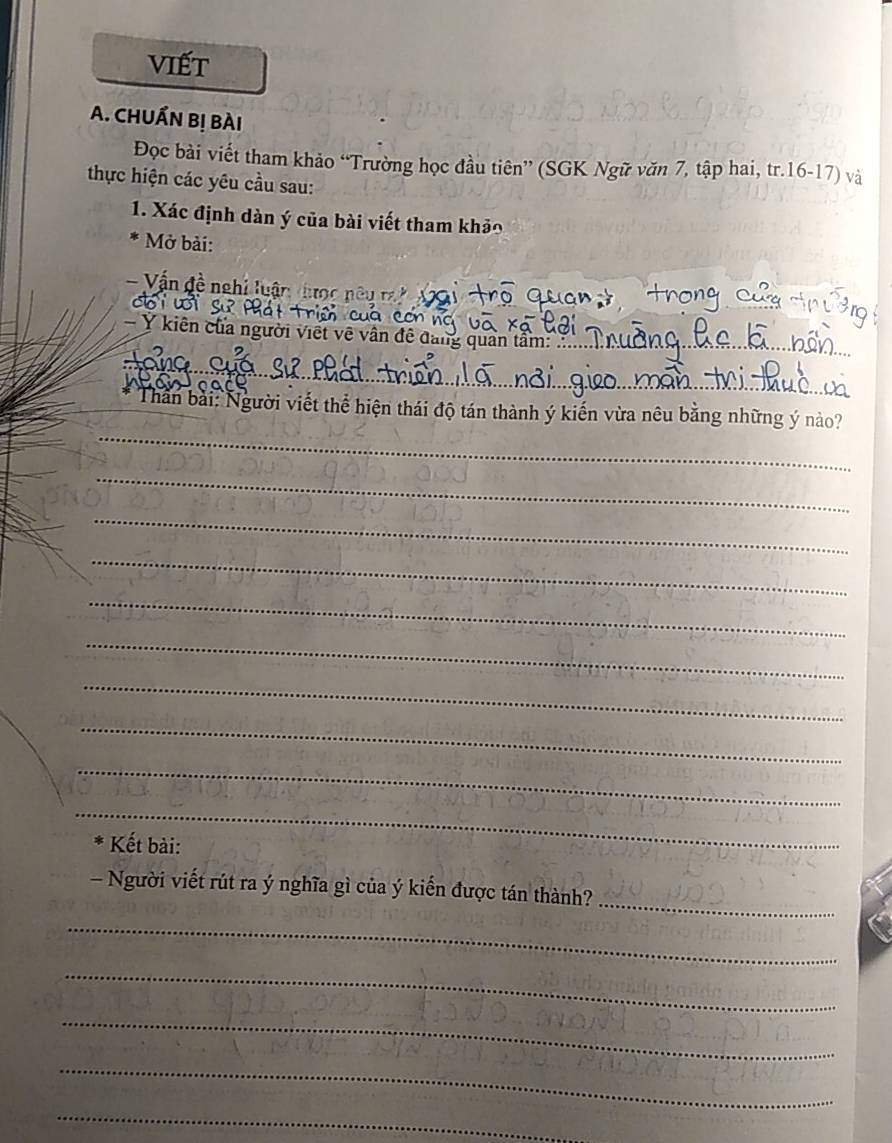 VIẾT
A. CHUẨN BỊ BÀI
Đọc bài viết tham khảo “Trường học đầu tiên” (SGK Ngữ văn 7, tập hai, tr.16-17) và
thực hiện các yêu cầu sau:
1. Xác định dàn ý của bài viết tham khảo
* Mở bài:
– Vấn đề nghị luận được nêu ra: vai trò quan trọng của trường
đối với sự phát triển của con ng và xã hội
– Ý kiến của người viết về vấn đề đang quan tâm: Trường học là nền
tảng của sự phát triển, là nơi gieo mầm tri thức và
nhân cách
* Thân bài: Người viết thể hiện thái độ tán thành ý kiến vừa nêu bằng những ý nào?
* Kết bài:
– Người viết rút ra ý nghĩa gì của ý kiến được tán thành?